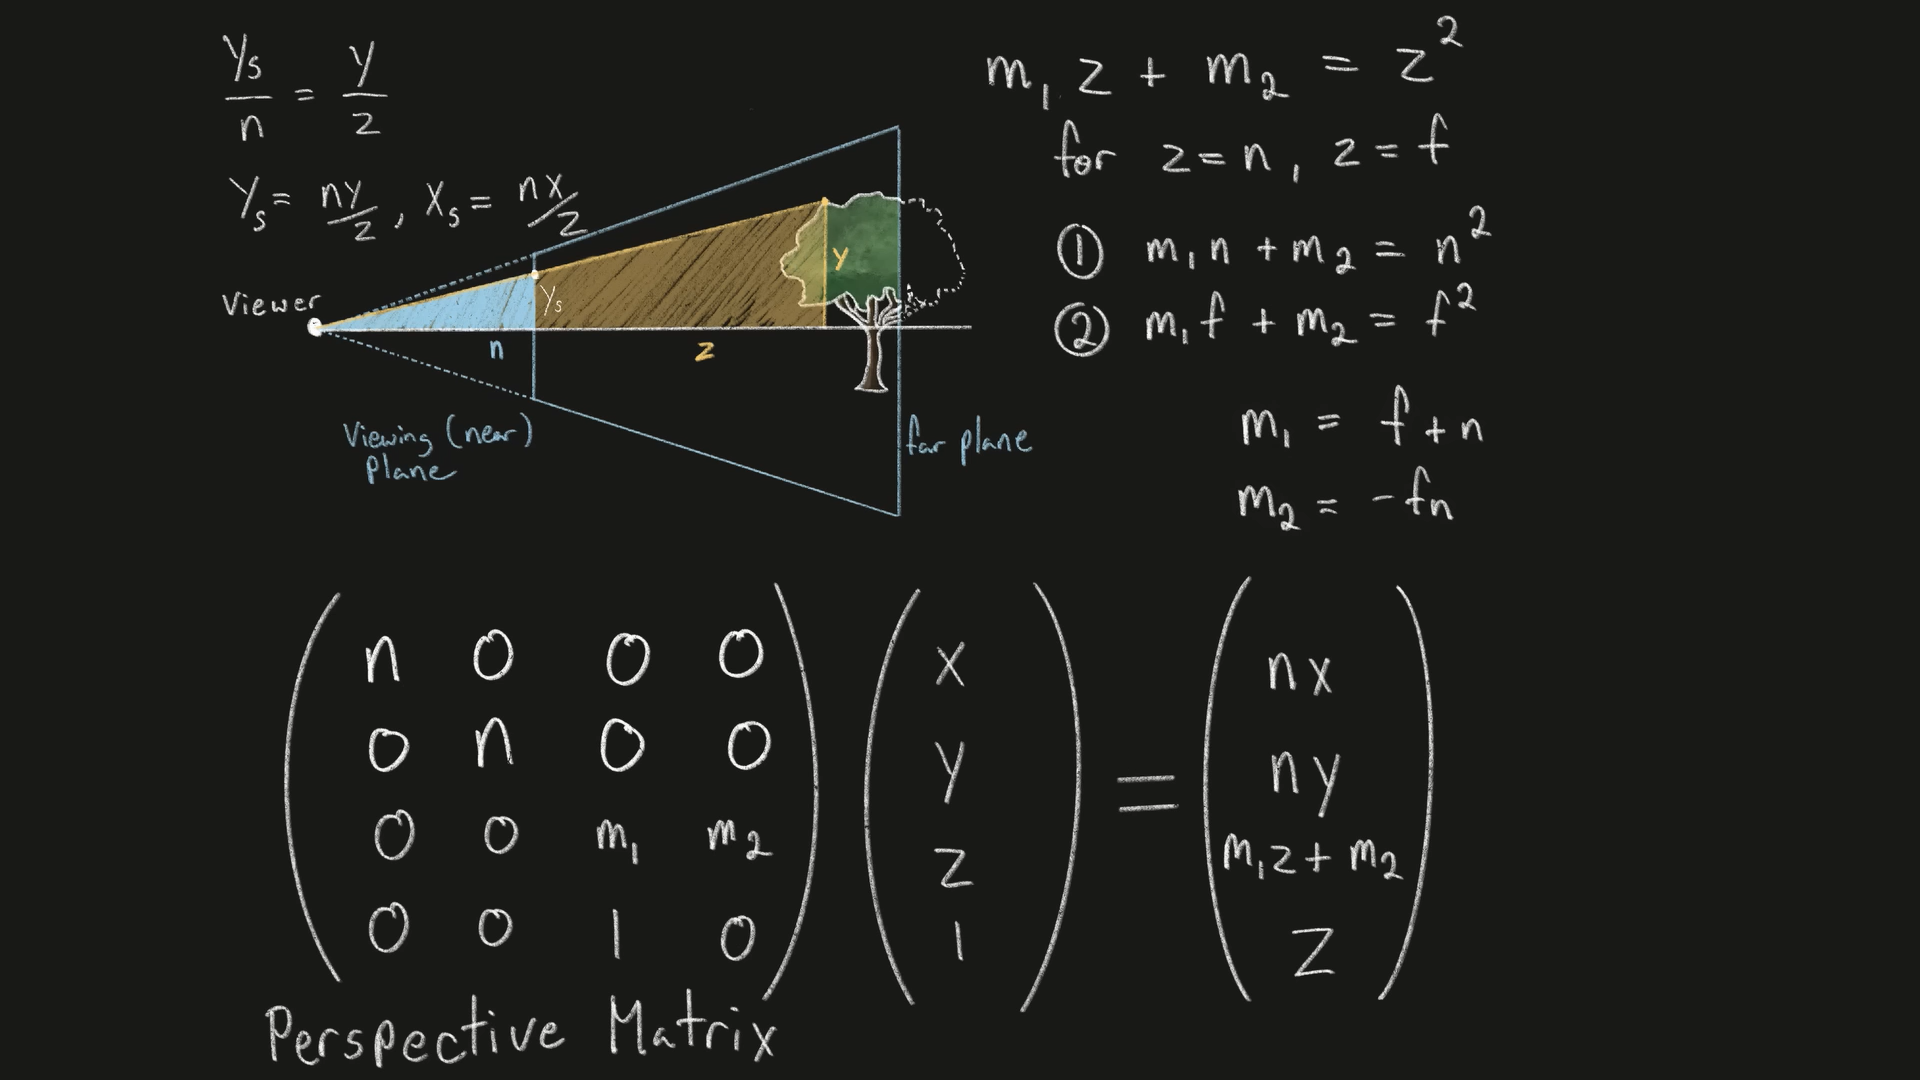 Ys/n = y/z
Ys = ny/z, Xs = nx/z
Viewer
Ys
y
n
z
Viewing (near)
Plane
far plane
m₁ z + m₂ = z²
for z = n, z = f
① m₁n + m₂ = n²
② m₁f + m₂ = f²
m₁ = f + n
m₂ = -fn
( n 0 0 0 ) ( x ) = ( nx )
( 0 n 0 0 ) ( y ) = ( ny )
( 0 0 m₁ m₂ ) ( z ) = ( m₁z + m₂ )
( 0 0 1 0 ) ( 1 ) = ( z )
Perspective Matrix